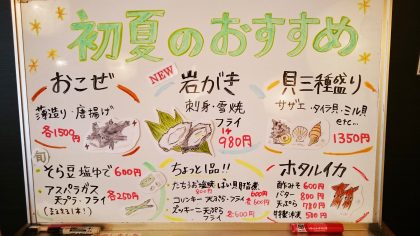 初夏のおすすめ
おこぜ
薄造り・唐揚げ
各1500円
NEW
岩がき
刺身・雪焼
フライ
1ケ 980円
貝三種盛り
サザエ・タイラ貝・ミル貝
etc...
1350円
旬
そら豆 塩ゆで 600円
アスパラガス
天プラ・フライ
各250円
(まるまる1本!)
ちょっと1品!!
たちうお塩焼
800円
ばい貝旨煮
600円
コリンキー 天ぷら・フライ
ズッキーニ 天ぷら
フライ
各600円
ホタルイカ
酢みそ 600円
バター 800円
天ぷら 780円
特製沖漬 500円